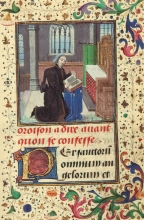 oroison a dire auant
quon se confesse
Per sanctoru
omnium an
gelorum et